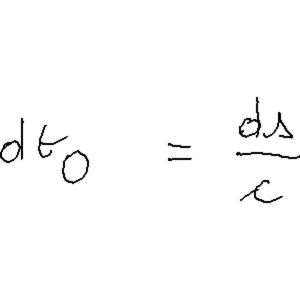 dt_0 = \frac{ds}{c}